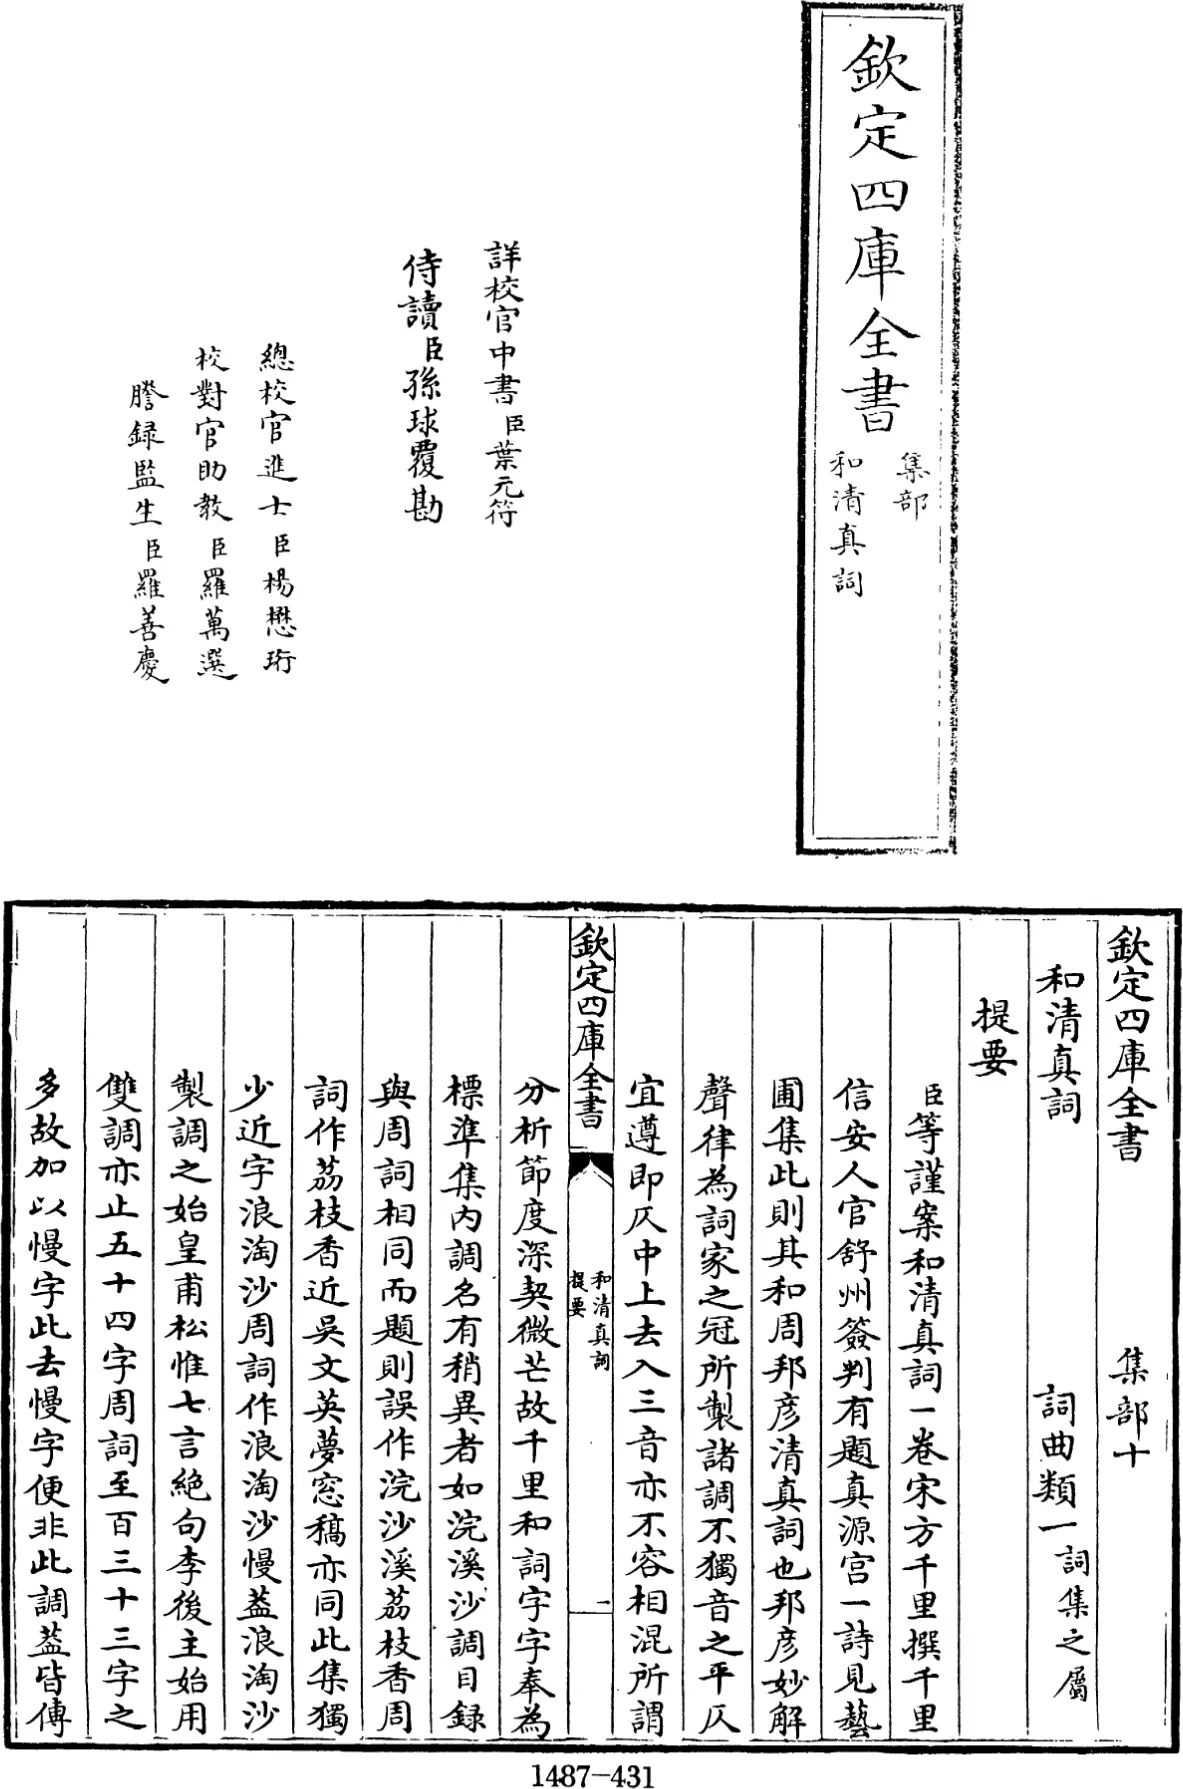 欽定四庫全書
集部
和清真詞
詳校官中書臣葉元符
侍讀臣孫球覆勘
總校官進士臣楊懋珩
校對官助教臣羅萬選
謄録監生臣羅善慶
欽定四庫全書 集部十
和清真詞 詞曲類一詞集之屬
提要
臣等謹案和清真詞一卷宋方千里撰千里
信安人官舒州簽判有題真源宫一詩見藝
圃集此則其和周邦彦清真詞也邦彦妙解
聲律為詞家之冠所製諸調不獨音之平仄
宜遵即仄中上去入三音亦不容相混所謂
欽定四庫全書
和清真詞
提要
一
分析節度深契微芒故千里和詞字字奉為
標準集内調名有稍異者如浣溪沙調目録
與周詞相同而題則誤作浣沙溪荔枝香周
詞作荔枝香近吳文英夢窓稿亦同此集獨
少近字浪淘沙周詞作浪淘沙慢葢浪淘沙
製調之始皇甫松惟七言絶句李後主始用
雙調亦止五十四字周詞至百三十三字之
多故加以慢字此去慢字便非此調葢皆傳
1487-431